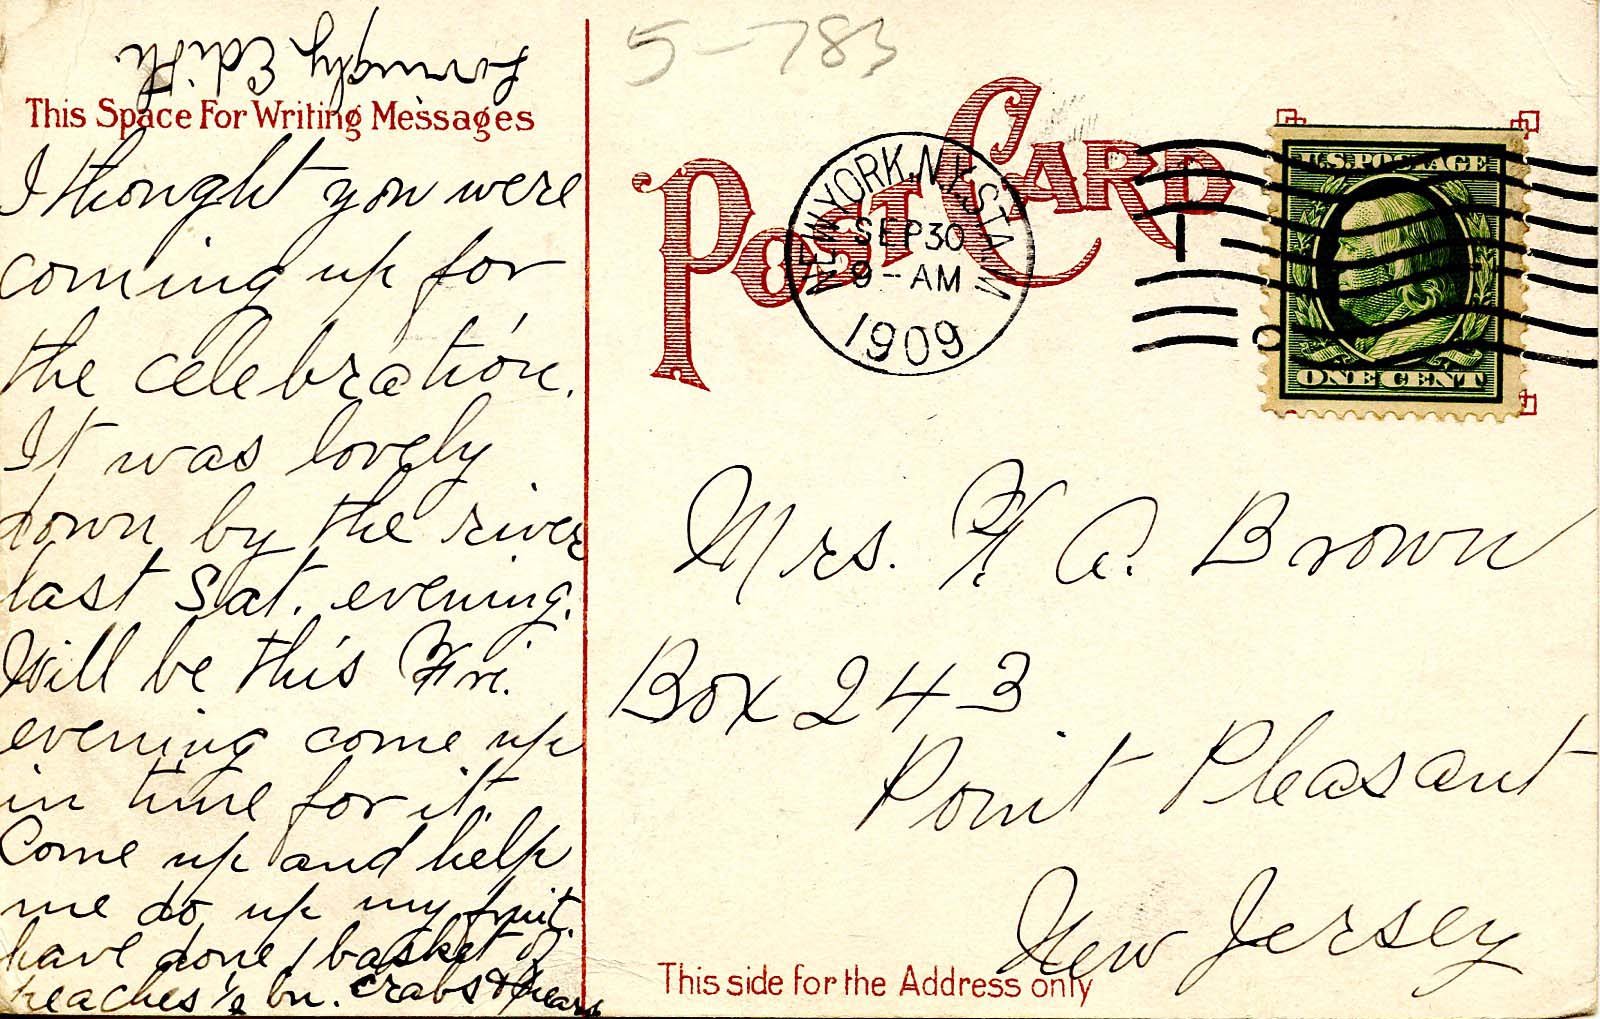 Lovingly Edith.
This Space For Writing Messages
I thought you were
coming up for
the celebration.
It was lovely
down by the river
last Sat. evening.
Will be this Fri.
evening come up
in time for it.
Come up and help
me do up my fruit.
have done 1 basket of
peaches ½ bu. crabs & pears
5-783
POST CARD
NEW YORK, N.Y. STA.
SEP 30
9-AM
1909
U.S. POSTAGE
ONE CENT
Mrs. F. A. Brown
Box 243
Point Pleasant
New Jersey
This side for the Address only